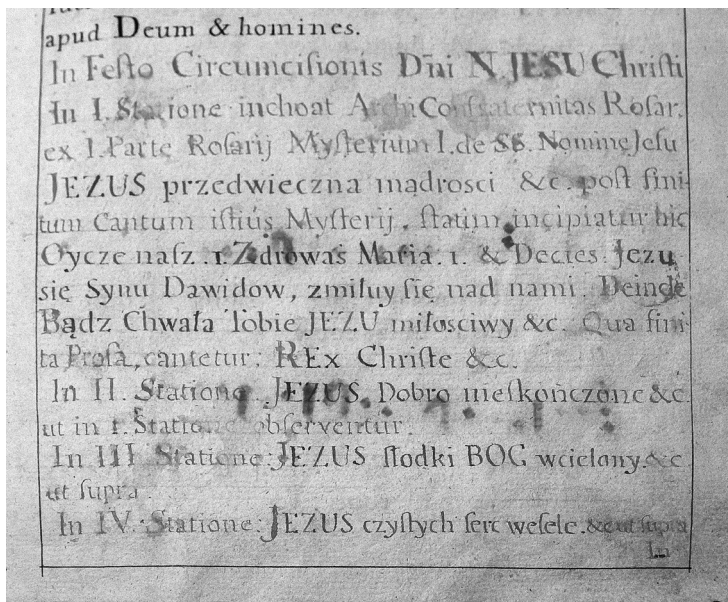 apud Deum & homines.
In Feſto Circumciſionis Dn̄i N. JESU Chriſti
In I. Statione inchoat ArchiConfraternitas Roſar.
ex I. Parte Roſarij Myſterium I. de SS. Nomine Jeſu
JEZUS przedwieczna mądrosci &c. poſt fini-
tum Cantum iſtius Myſterij, ſtatim incipiatur hic
Oycze naſz. 1. Zdrowaś Maria. 1. & Decies. Jezu
się Synu Dawidow, zmiłuy ſię nad nami. Deinde
Bądz Chwała Tobie JEZU miłosciwy &c. Qua fini-
ta Proſa, cantetur: REx Chriſte &c.
In II. Statione. JEZUS. Dobro nieſkończone &c.
ut in 1. Statione obſerventur.
In III Statione: JEZUS ſłodki BOG wcielany. &c
ut ſupra.
In IV. Statione: JEZUS czyſtych ſerc weſele. &c ut ſupra
In